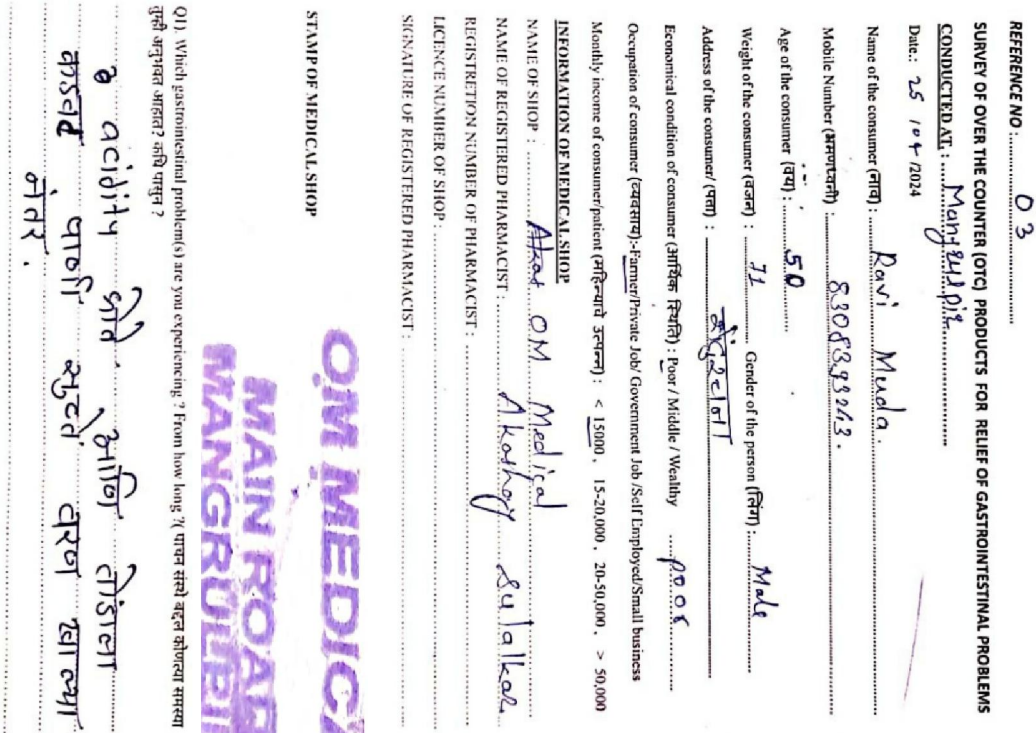 REFERENCE NO : 03
SURVEY OF OVER THE COUNTER (OTC) PRODUCTS FOR RELIEF OF GASTROINTESTINAL PROBLEMS
CONDUCTED AT : Mangrulpir
Date:: 25 / 04 /2024
Name of the consumer (नाव) : Ravi Muda.
Mobile Number (भ्रमणध्वनी) : 8308393243.
Age of the consumer (वय) : 50
Weight of the consumer (वजन) : 71 Gender of the person (लिंग) : Male
Address of the consumer/ (पत्ता) :
Economical condition of consumer (आर्थिक स्थिति) : Poor / Middle / Wealthy poor
Occupation of consumer (व्यवसाय):-Farmer/Private Job/ Government Job /Self Employed/Small business
Monthly income of consumer/patient (महिन्याचे उत्पन्न) : < 15000 , 15-20,000 , 20-50,000 , > 50,000
INFORMATION OF MEDICAL SHOP
NAME OF SHOP : OM Medical
NAME OF REGISTERED PHARMACIST : Akashay Sulalkar
REGISTRETION NUMBER OF PHARMACIST :
LICENCE NUMBER OF SHOP :
SIGNATURE OF REGISTERED PHARMACIST :
STAMP OF MEDICAL SHOP
OM MEDICA
MAIN ROAD
MANGRULPIR
Q1). Which gastrointestinal problem(s) are you experiencing ? From how long ?( पाचन संस्थे बद्दल कोणत्या समस्या
तुम्ही अनुभवत आहात? कधि पासुन ?
acidity होते. आणि तोंडाला
कडवट पाणी सुटते वरण खाल्या
नंतर.